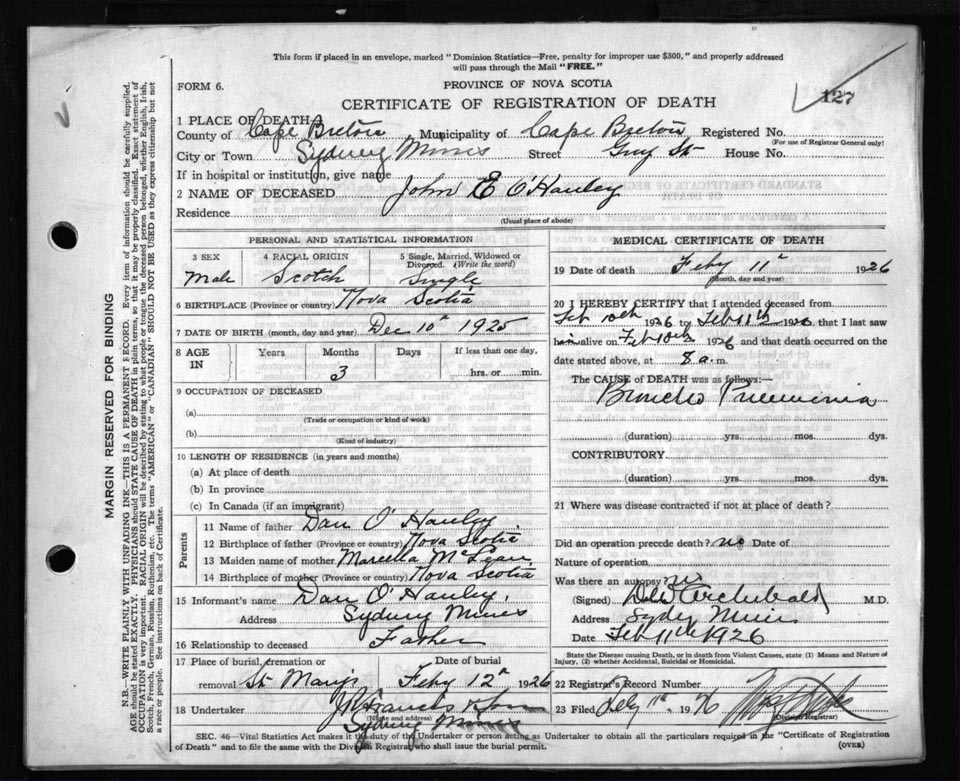 This form if placed in an envelope, marked "Dominion Statistics—Free, penalty for improper use $300," and properly addressed
will pass through the Mail "FREE."
FORM 6.
PROVINCE OF NOVA SCOTIA
127
CERTIFICATE OF REGISTRATION OF DEATH
1 PLACE OF DEATH
County of Cape Breton Municipality of Cape Breton Registered No.
(For use of Registrar General only)
City or Town Sydney Mines Street House No.
If in hospital or institution, give name
2 NAME OF DECEASED John E O'Hanley
Residence
(Usual place of abode)
PERSONAL AND STATISTICAL INFORMATION
3 SEX 4 RACIAL ORIGIN 5 Single, Married, Widowed or
Divorced. (Write the word)
Male Scotch Single
6 BIRTHPLACE (Province or country) Nova Scotia
7 DATE OF BIRTH (month, day and year) Dec 10th 1925
8 AGE IN Years Months Days If less than one day,
3 hrs. or min.
9 OCCUPATION OF DECEASED
(a)
(Trade or occupation or kind of work)
(b)
(Kind of industry)
10 LENGTH OF RESIDENCE (in years and months)
(a) At place of death
(b) In province
(c) In Canada (if an immigrant)
Parents
11 Name of father Dan O'Hanley
12 Birthplace of father (Province or country) Nova Scotia
13 Maiden name of mother Marcella McLean
14 Birthplace of mother (Province or country) Nova Scotia
15 Informant's name Dan O'Hanley
Address Sydney Mines
16 Relationship to deceased Father
17 Place of burial, cremation or Date of burial
removal St Marys Feby 12th 1926
18 Undertaker Francis & Son
(Name and address)
Sydney Mines
MEDICAL CERTIFICATE OF DEATH
19 Date of death Feby 11th 1926
(Month, day and year)
20 I HEREBY CERTIFY that I attended deceased from
Feb 10th 1926 to Feb 11th 1926 that I last saw
him alive on Feb 10th 1926 and that death occurred on the
date stated above, at 8 a.m.
The CAUSE of DEATH was as follows:—
Broncho Pneumonia
(duration) yrs. mos. dys.
CONTRIBUTORY
(duration) yrs. mos. dys.
21 Where was disease contracted if not at place of death?
Did an operation precede death? no Date of
Nature of operation
Was there an autopsy? no
(Signed) Archibald M.D.
Address Sydney Mines
Date Feb 11th 1926
State the Disease causing Death, or in death from Violent Causes, state (1) Means and Nature of
Injury, (2) whether Accidental, Suicidal or Homicidal.
22 Registrar's Record Number
23 Filed 11th
(Division Registrar)
SEC. 46—Vital Statistics Act makes it the duty of the Undertaker or person acting as Undertaker to obtain all the particulars required in the "Certificate of Registration
of Death" and to file the same with the Division Registrar who shall issue the burial permit.
(OVER)
MARGIN RESERVED FOR BINDING
N.B.—WRITE PLAINLY WITH UNFADING INK—THIS IS A PERMANENT RECORD. Every item of information should be carefully supplied.
AGE should be stated EXACTLY. PHYSICIANS should STATE CAUSE OF DEATH in plain terms, so that it may be properly classified. Exact statement of
OCCUPATION is very important. RACIAL ORIGIN will be described by stating to what people or tongue the deceased person belonged, whether English, Irish,
Scotch, French, German, Russian, Ruthenian, etc. The terms "AMERICAN" or "CANADIAN" SHOULD NOT BE USED as they express citizenship but not
a race or people. See instructions on back of Certificate.